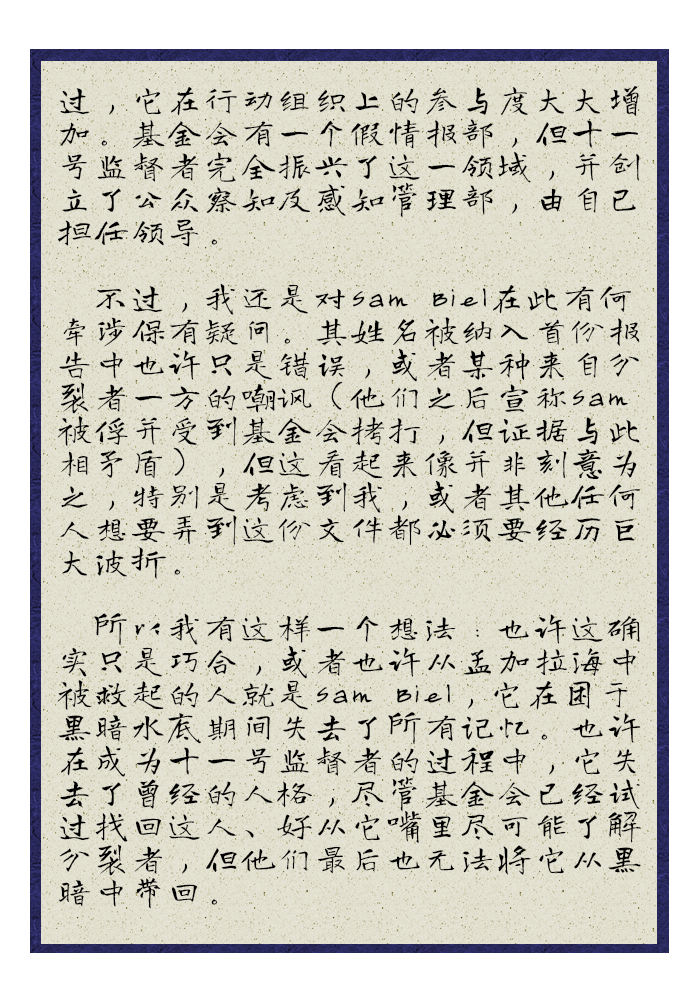 过，它在行动组织上的参与度大大增
加。基金会有一个假情报部，但十一
号监督者完全振兴了这一领域，并创
立了公众察知及感知管理部，由自己
担任领导。
不过，我还是对Sam Biel在此有何
牵涉保有疑问。其姓名被纳入首份报
告中也许只是错误，或者某种来自分
裂者一方的嘲讽（他们之后宣称Sam
被俘并受到基金会拷打，但证据与此
相矛盾），但这看起来像并非刻意为
之，特别是考虑到我，或者其他任何
人想要弄到这份文件都必须要经历巨
大波折。
所以我有这样一个想法：也许这确
实只是巧合，或者也许从孟加拉海中
被救起的人就是Sam Biel，它在困于
黑暗水底期间失去了所有记忆。也许
在成为十一号监督者的过程中，它失
去了曾经的人格，尽管基金会已经试
过找回这人、好从它嘴里尽可能了解
分裂者，但他们最后也无法将它从黑
暗中带回。